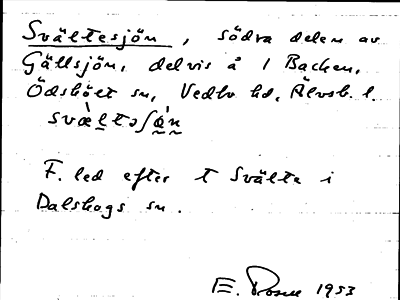 Svältesjön, södra delen av
Gällsjön, delvis å 1 Backen,
Ödskölt sn, Vedbo hd, Älvsb. l.
svæ̀ltəʃǿn
F. led efter t Svälte i
Dalskogs sn.
E. 1953